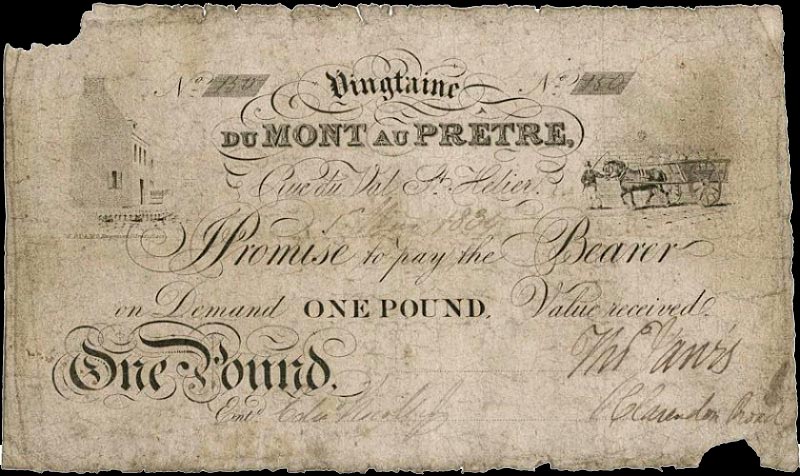 No. 150 Vingtaine No. 150
DU MONT AU PRETRE,
Rue du Val St. Helier.
1834
I Promise to pay the Bearer
on Demand ONE POUND. Value received.
One Pound. Thos
Entd. Clarendon Road